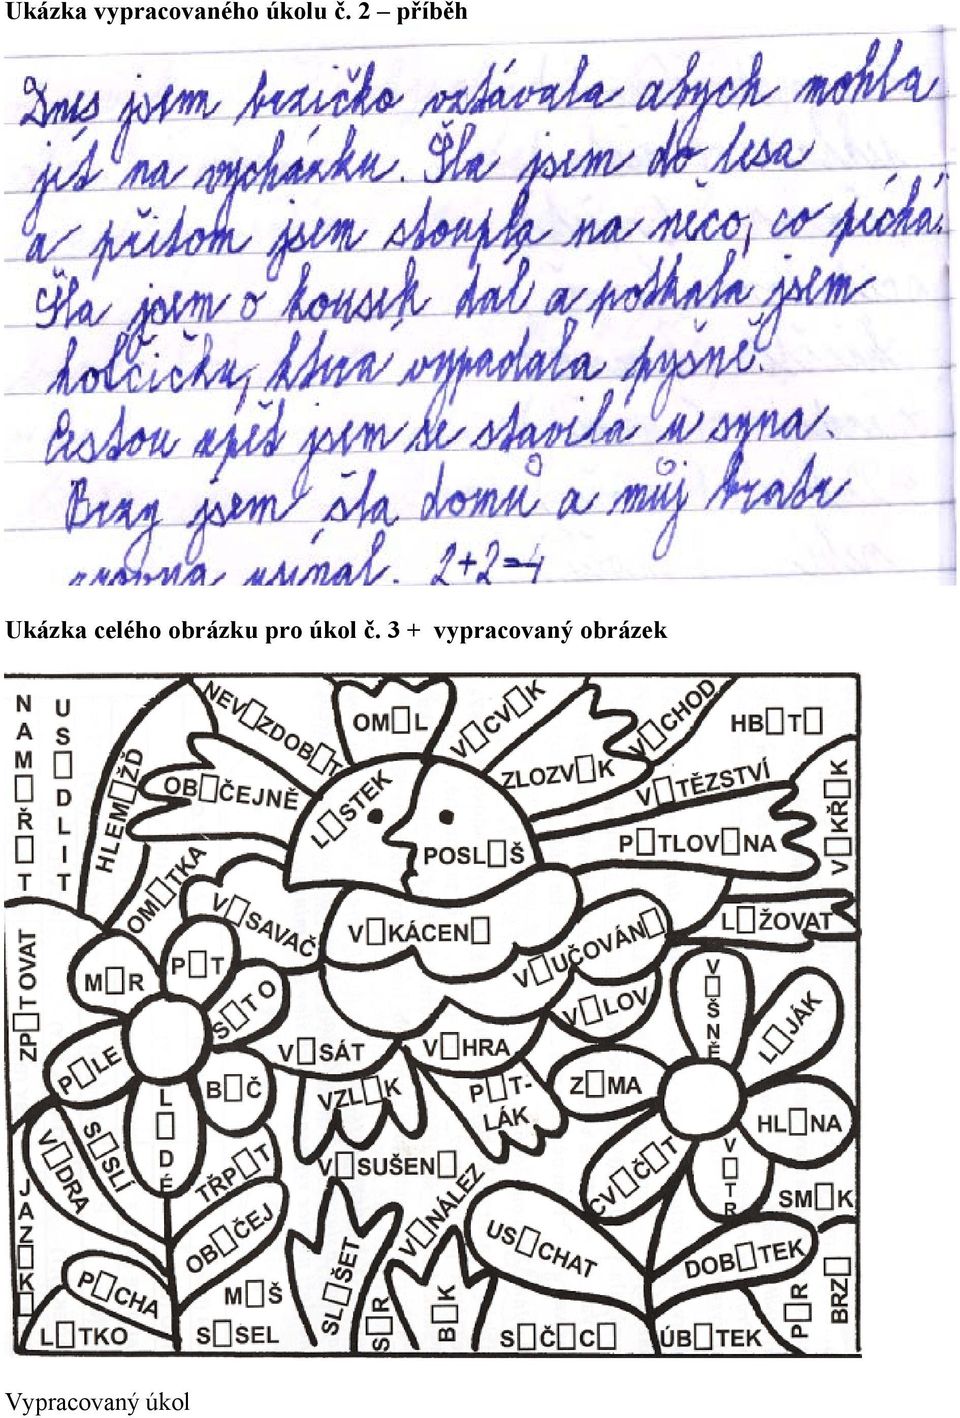 Ukázka vypracovaného úkolu č. 2 – příběh
Dnes jsem brzičko vstávala abych mohla
jít na vycházku. Šla jsem do lesa
a přitom jsem stoupla na něco, co píchá.
Šla jsem o kousek dál a potkala jsem
holčičku, ktera vypadala pyšně.
Cestou zpět jsem se stavila u syna.
Brzy jsem šla domů a můj bratr
zrovna usínal. 2+2=4
Ukázka celého obrázku pro úkol č. 3 + vypracovaný obrázek
NAM□Ř□T
US□DLIT
HLEM□ŽĎ
NEV□ZDOB□T
OM□L
V□CV□K
V□CHOD
HB□T□
OB□ČEJNĚ
L□STEK
ZLOZV□K
V□TĚZSTVÍ
V□KŘ□K
POSL□Š
P□TLOV□NA
OM□TKA
V□SAVAČ
V□KÁCEN□
V□UČOVÁN□
L□ŽOVAT
ZP□TOVAT
M□R
P□T
S□TO
V□LOV
V□ŠNĚ
L□JÁK
P□LE
V□SÁT
V□HRA
B□Č
VZL□K
P□T-
LÁK
Z□MA
L□DÉ
HL□NA
V□DRA
S□SLÍ
TŘP□T
V□SUŠEN□
CV□Č□T
V□TR
SM□K
JAZ□K□
OB□ČEJ
V□NÁLEZ
US□CHAT
DOB□TEK
P□CHA
M□Š
SL□ŠET
S□R
B□K
P□R
BRZ□
L□TKO
S□SEL
S□Č□C□
ÚB□TEK
Vypracovaný úkol